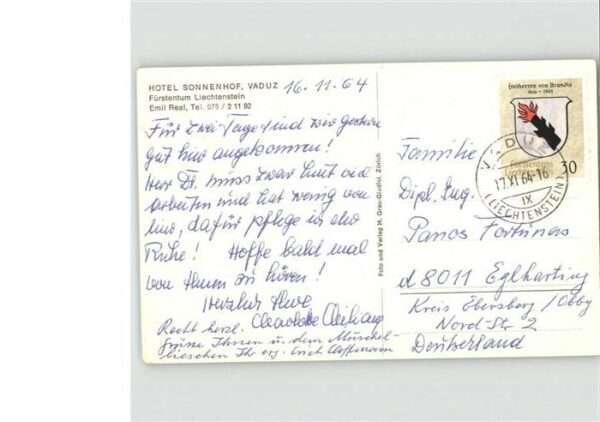 HOTEL SONNENHOF, VADUZ
Fürstentum Liechtenstein
Emil Real, Tel. 075 / 2 11 92
16.11.64
Für zwei Tage sind wir gestern
gut hier angekommen!
Herr Dr. muss zwar heut viel
arbeiten und hat wenig von
hier, dafür pflege ich die
Ruhe! Hoffe bald mal
von Ihnen zu hören!
Herzlich Ihre
Charlotte
Recht herzl.
Grüsse Ihnen u. dem Muschel-
lieschen Ihr erg. Erich
Foto und Verlag H. Grau-Giudisi, Zürich
Freiherren von Brandis
30
VADUZ
17.XI.64-16
IX
(LIECHTENSTEIN)
Familie
Dipl. Ing.
Panos Fortunas
d 8011 Eglharting
Kreis Ebersberg / Obby
Nord-Str 2
Deutschland